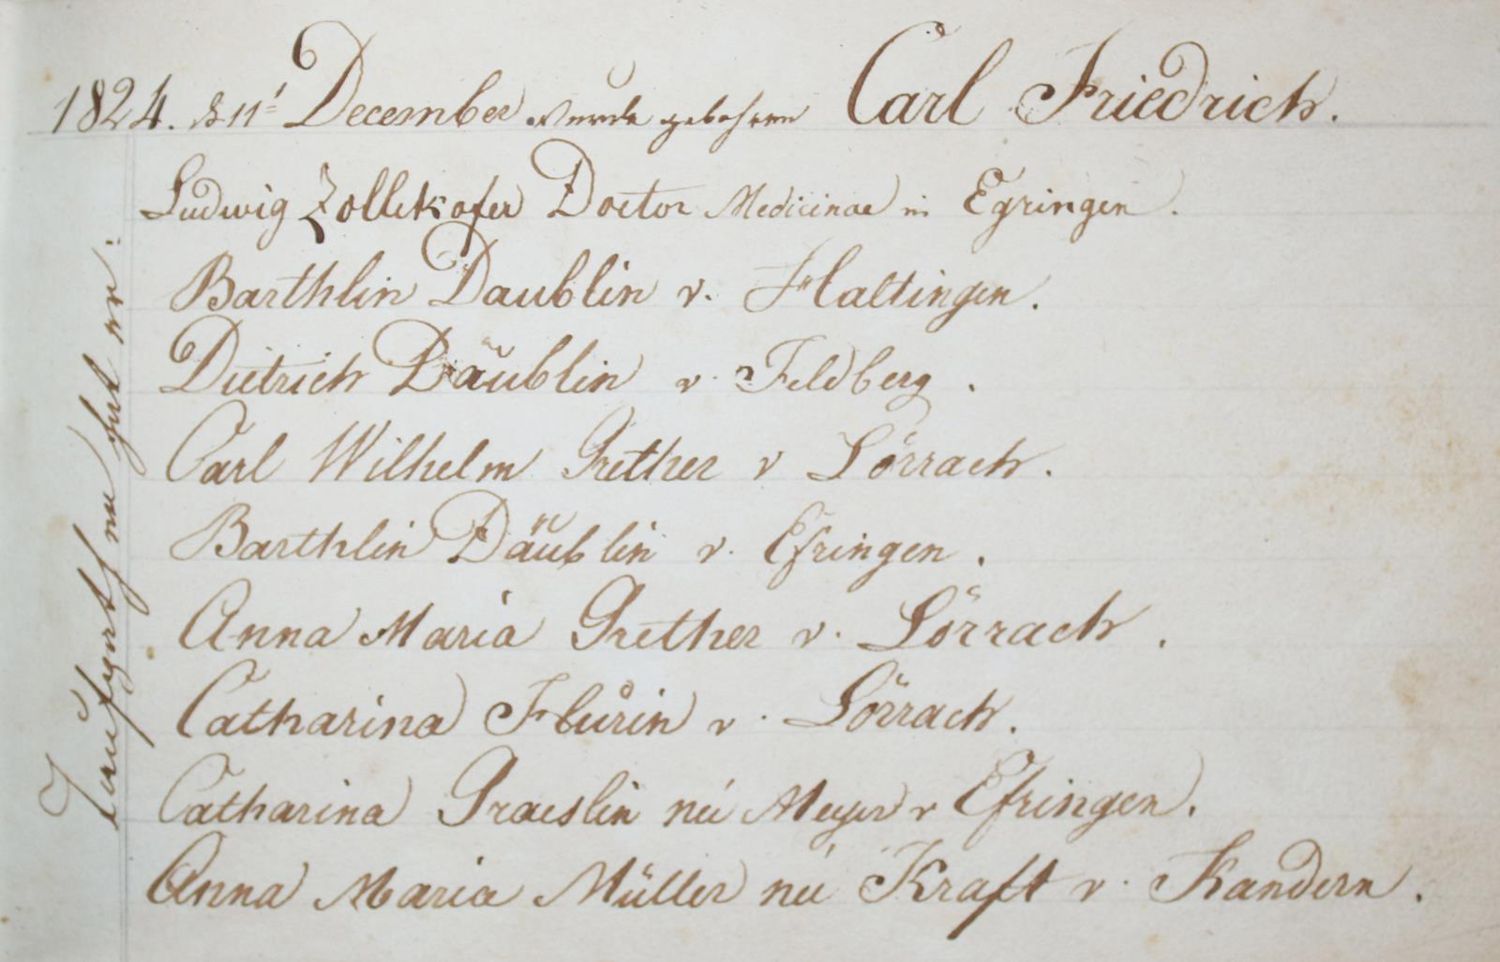 1824. d 11' December wurde gebohren Carl Friedrich.
Ludwig Zollikofer Doctor Medicinae in Egringen.
Barthlin Daublin v. Haltingen.
Dietrich Däublin v. Feldberg.
Carl Wilhelm Grether v Lörrach.
Barthlin Däublin v. Efringen.
Anna Maria Grether v. Lörrach.
Catharina Flurin v. Lörrach.
Catharina Graeslin né Meyer v Efringen.
Anna Maria Müller né Kraft v. Kandern.
Taufgotten hat er: